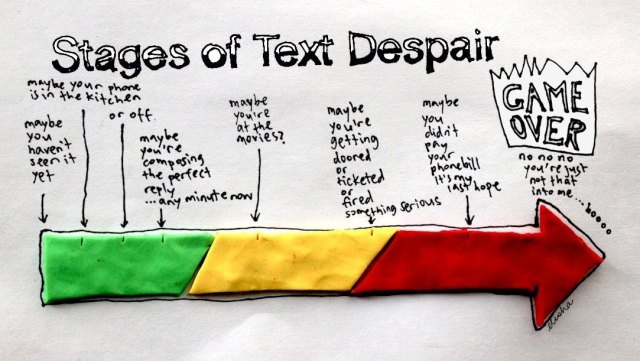 Stages of Text Despair
maybe
you
haven't
seen it
yet
maybe your phone
is in the kitchen
or off.
maybe
you're
composing
the perfect
reply
...any minute now
maybe
you're
at the
movies?
maybe
you're
getting
doored
or
ticketed
or
fired
something serious
maybe
you
didn't
pay
your
phonebill
it's my
last hope
GAME
OVER
no no no
you're just
not that
into me...boooo
elisha